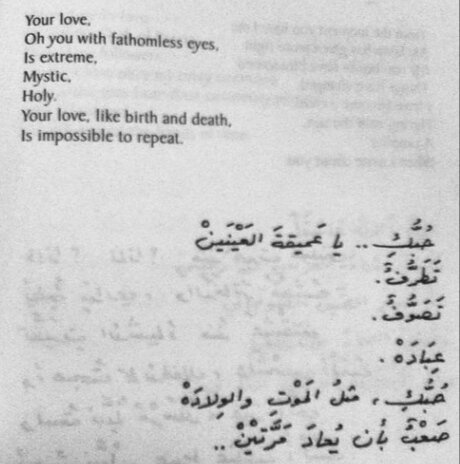 Your love,
Oh you with fathomless eyes,
Is extreme,
Mystic,
Holy.
Your love, like birth and death,
Is impossible to repeat.
حُبُّكِ .. يا عَميقةَ العَيْنَينْ
تَطَرُّفٌ.
تَصَوُّفٌ.
عِبَادَهْ .
حُبُّكِ ، مثلُ المَوْتِ والوِلادَهْ
صَعْبٌ بأن يُعادَ مَرَّتَيْنْ ..